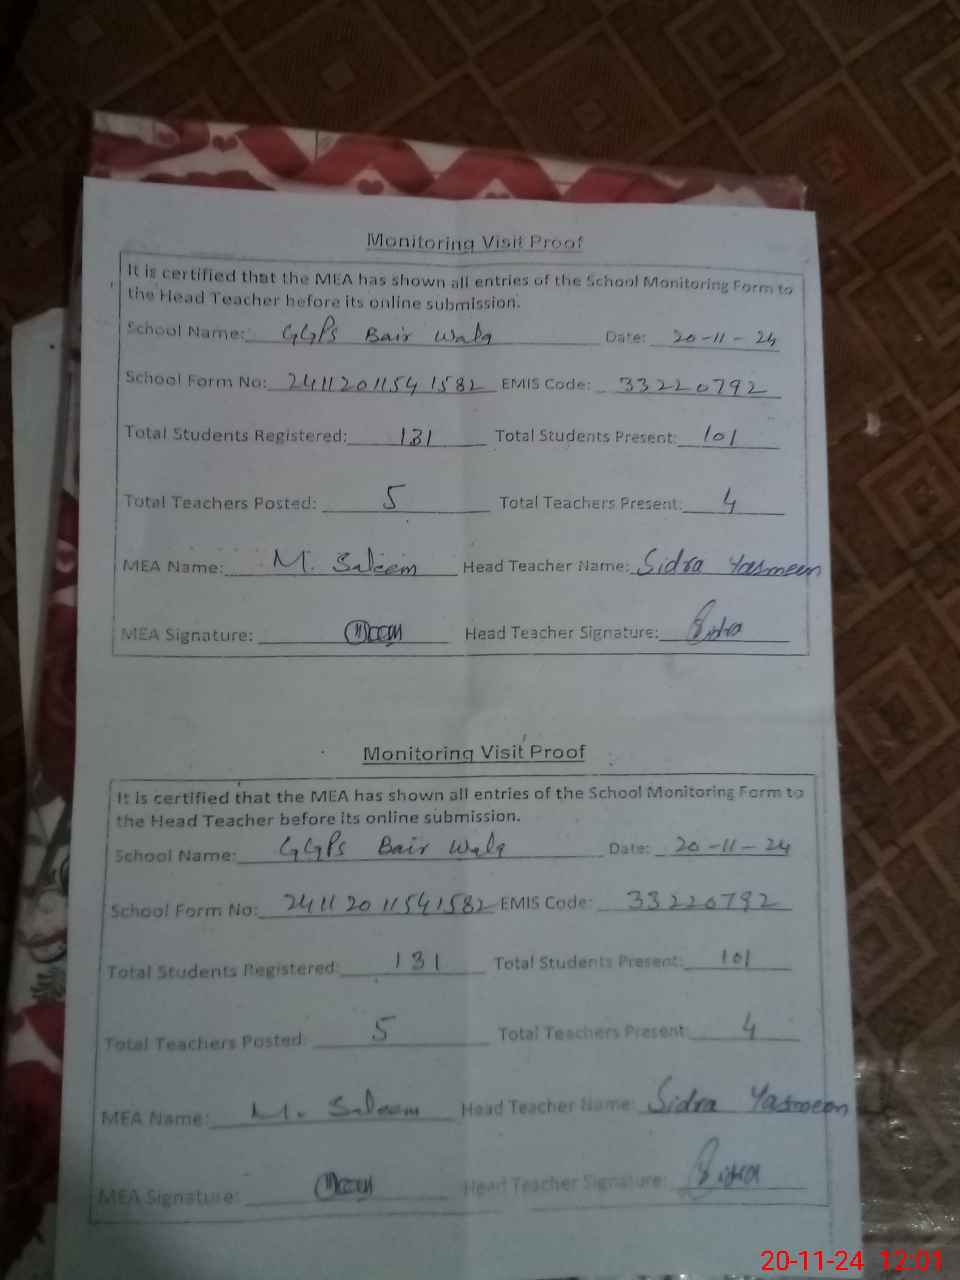 Monitoring Visit Proof
It is certified that the MEA has shown all entries of the School Monitoring Form to
the Head Teacher before its online submission.
School Name: GGPS Bair Wala Date: 20-11-24
School Form No: 24112011541582 EMIS Code: 33220792
Total Students Registered: 131 Total Students Present: 101
Total Teachers Posted: 5 Total Teachers Present: 4
MEA Name: M. Saleem Head Teacher Name: Sidra Yasmeen
MEA Signature: Head Teacher Signature: Sidra
Monitoring Visit Proof
It is certified that the MEA has shown all entries of the School Monitoring Form to
the Head Teacher before its online submission.
School Name: GGPS Bair Wala Date: 20-11-24
School Form No: 24112011541582 EMIS Code: 33220792
Total Students Registered: 131 Total Students Present: 101
Total Teachers Posted: 5 Total Teachers Present: 4
MEA Name: M. Saleem Head Teacher Name: Sidra Yasmeen
MEA Signature: Head Teacher Signature: Sidra
20-11-24 12:01